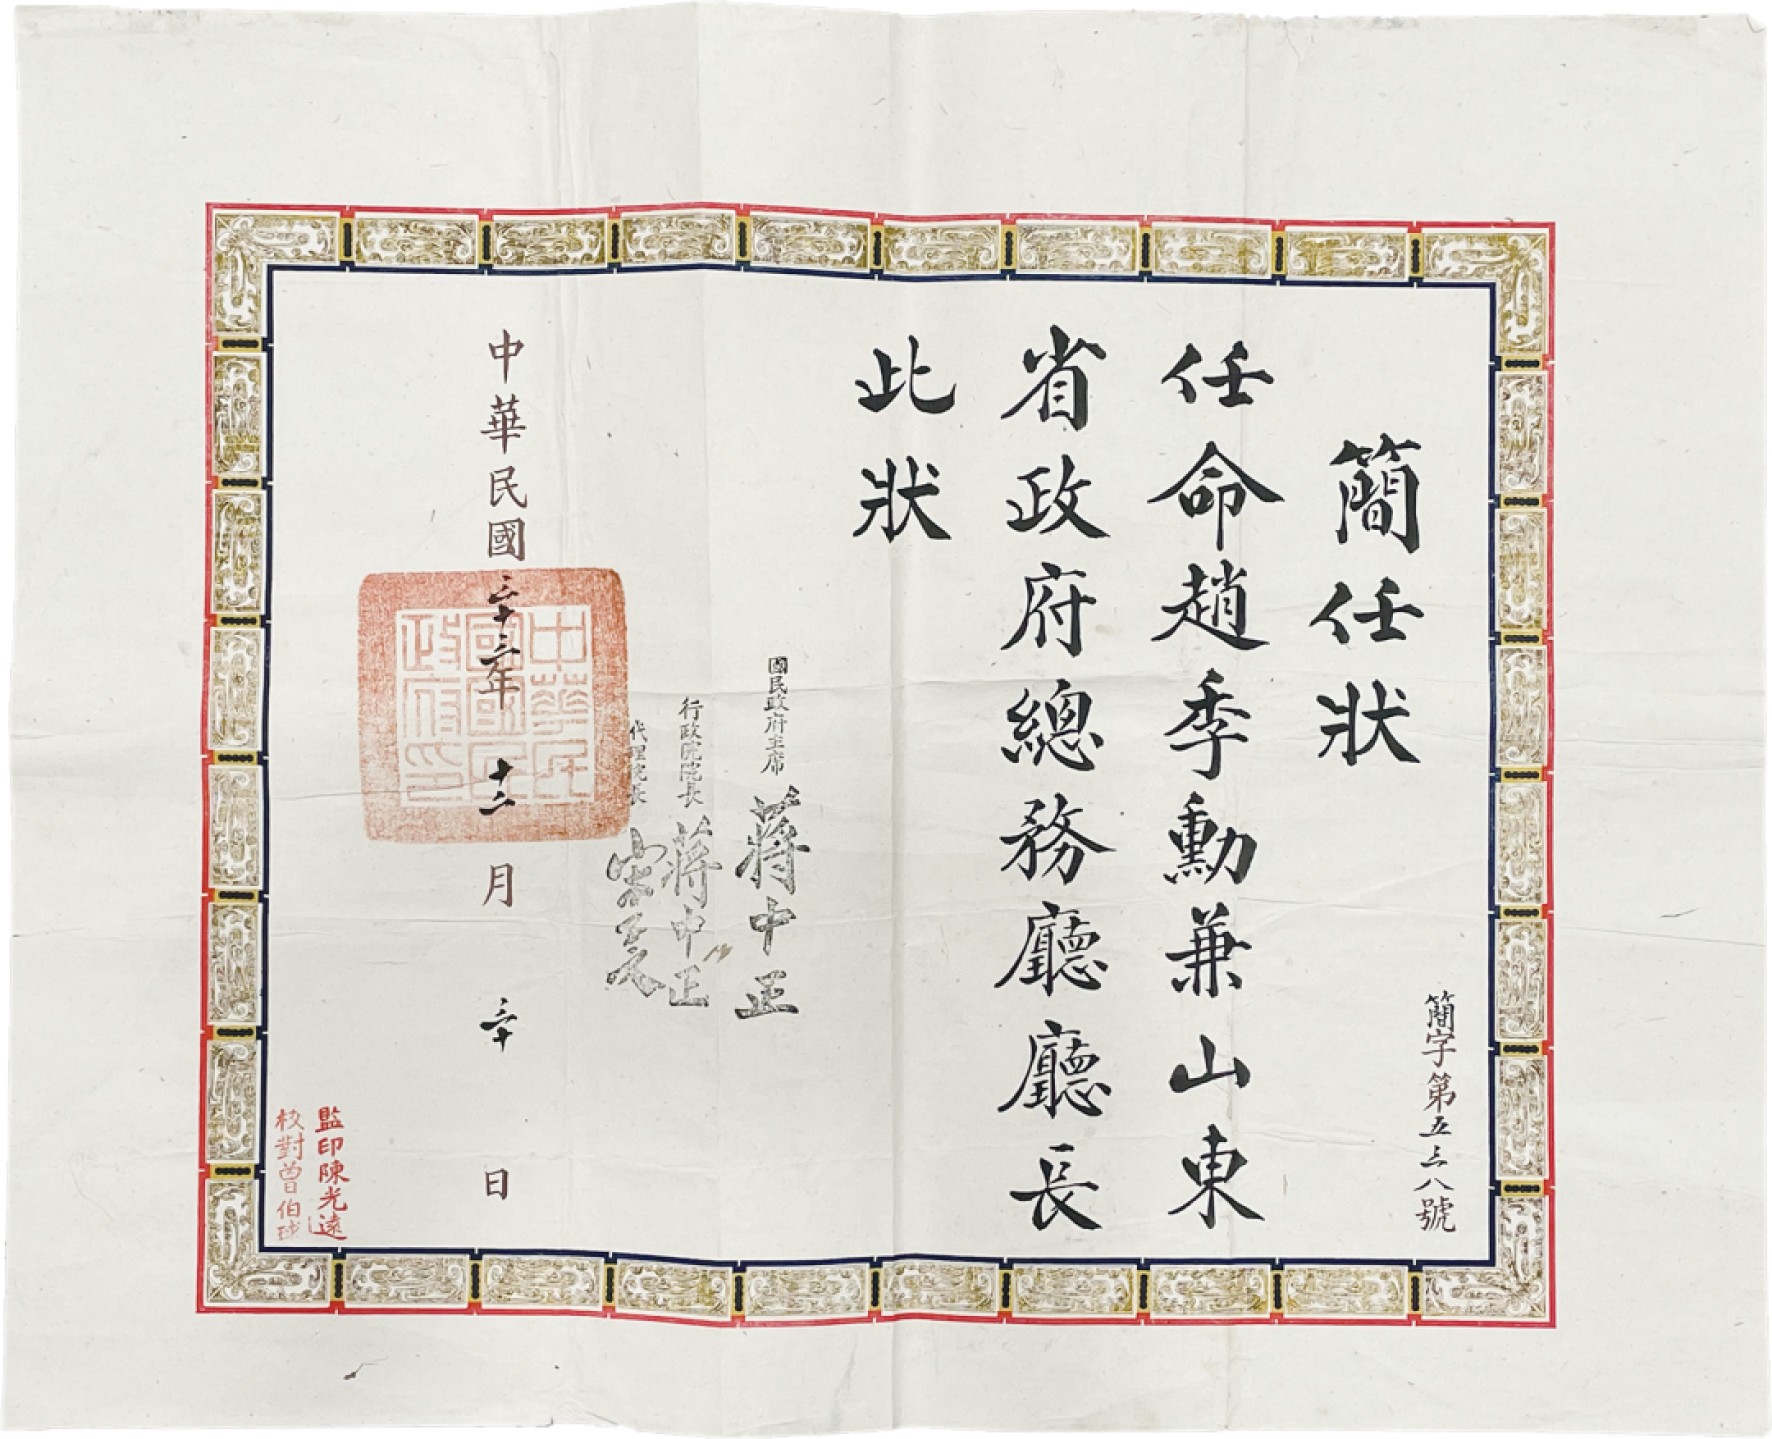 簡任狀
簡字第五三八號
任命趙季勳兼山東
省政府總務廳廳長
此狀
國民政府主席 蔣中正
行政院院長 蔣中正
代理院長 宋子文
中華民國三十三年十二月二十日
中華民國國民政府印
監印陳光遠
校對曾伯